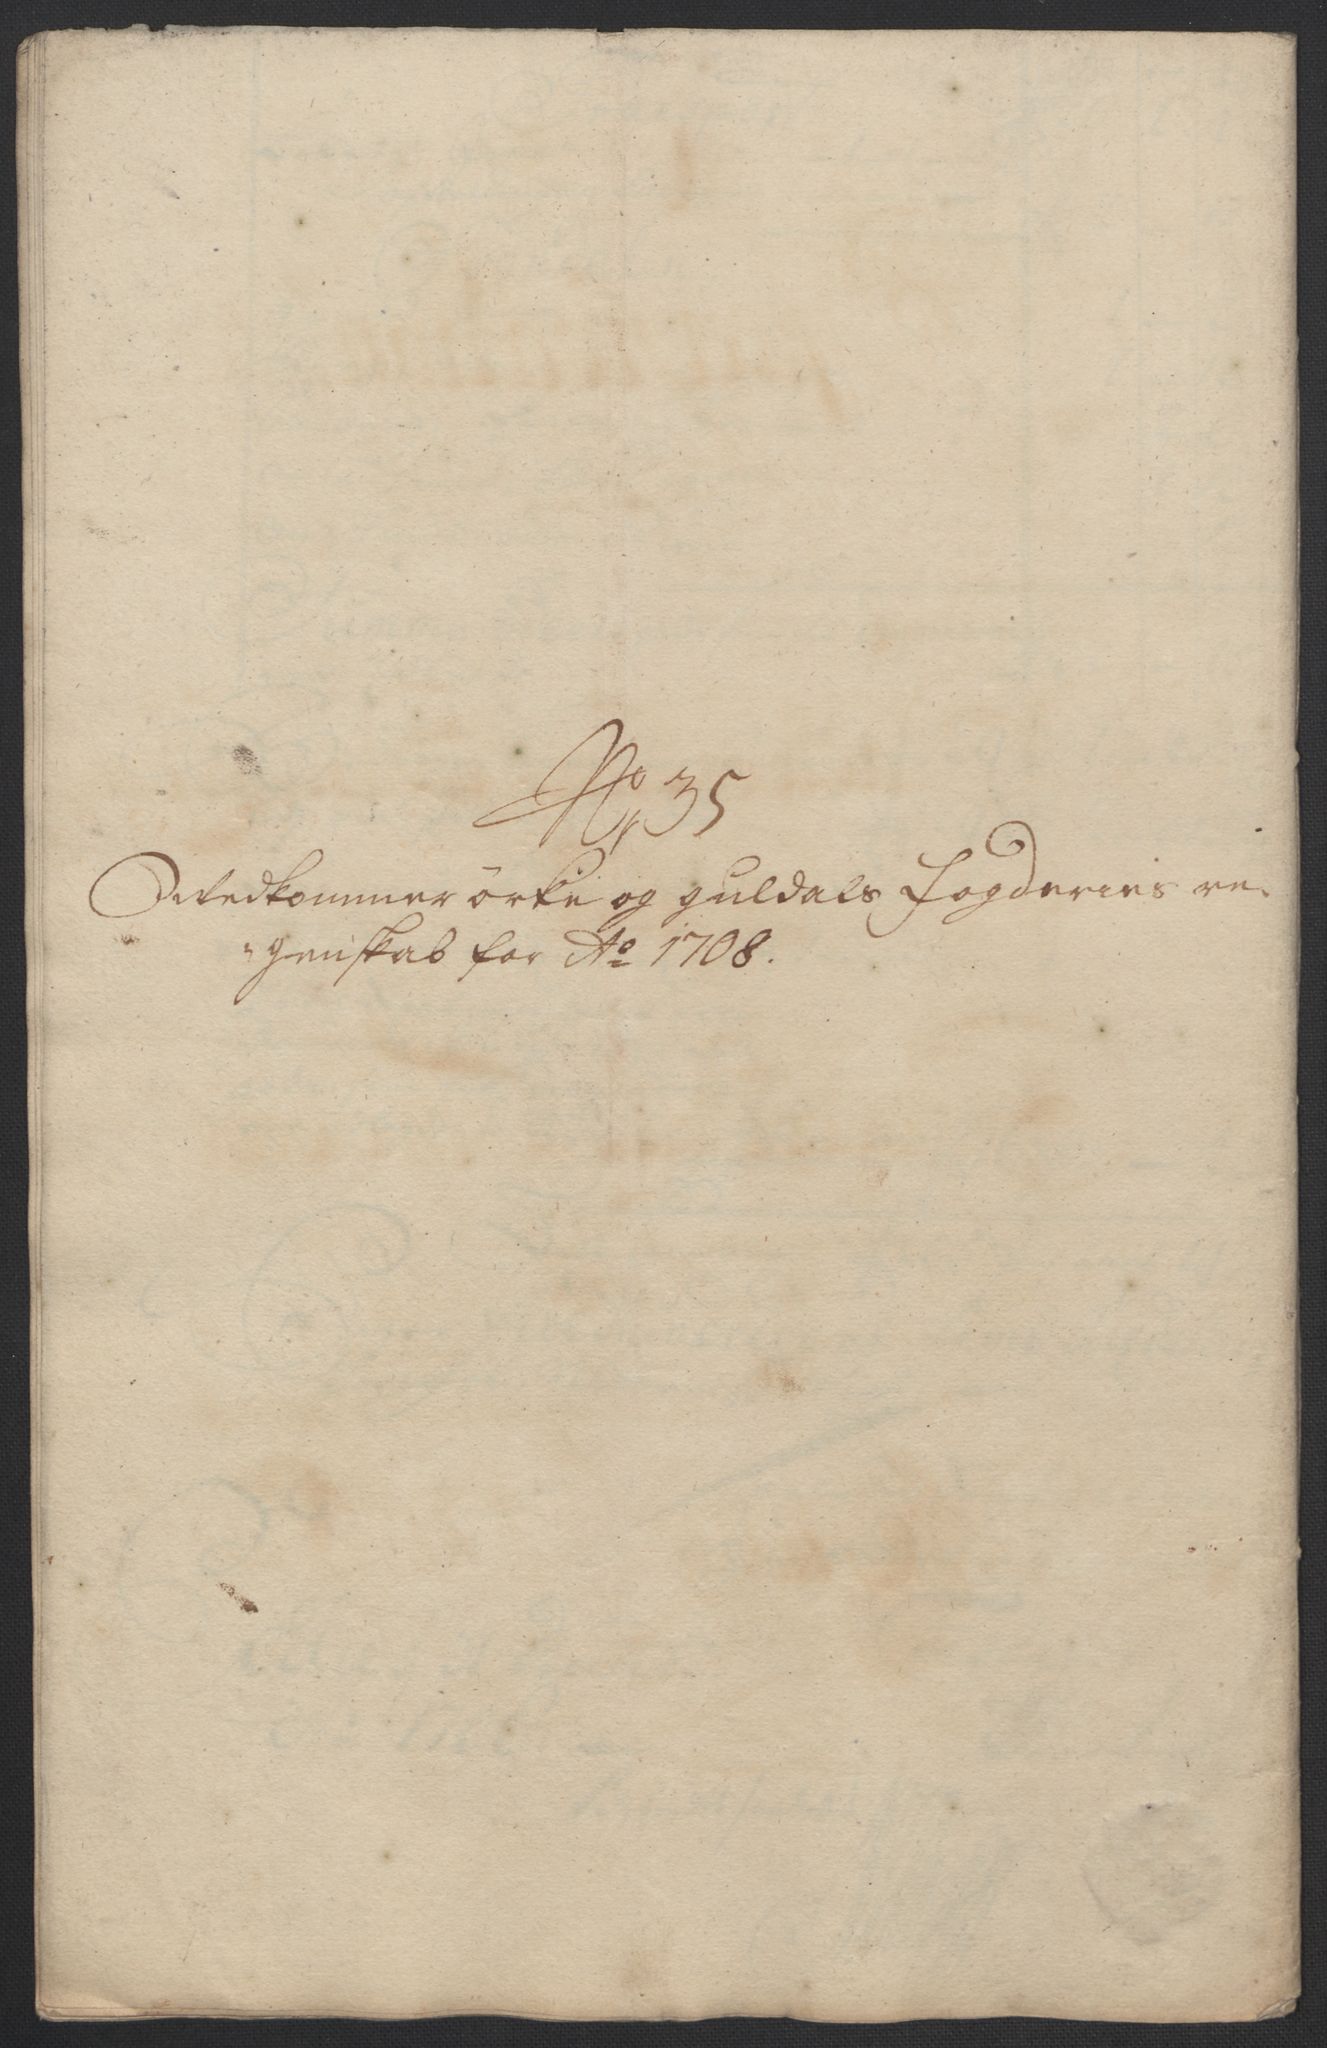 No 35
Vedkommer örke og guldals Fogderies re-
genskab for Ao 1708.